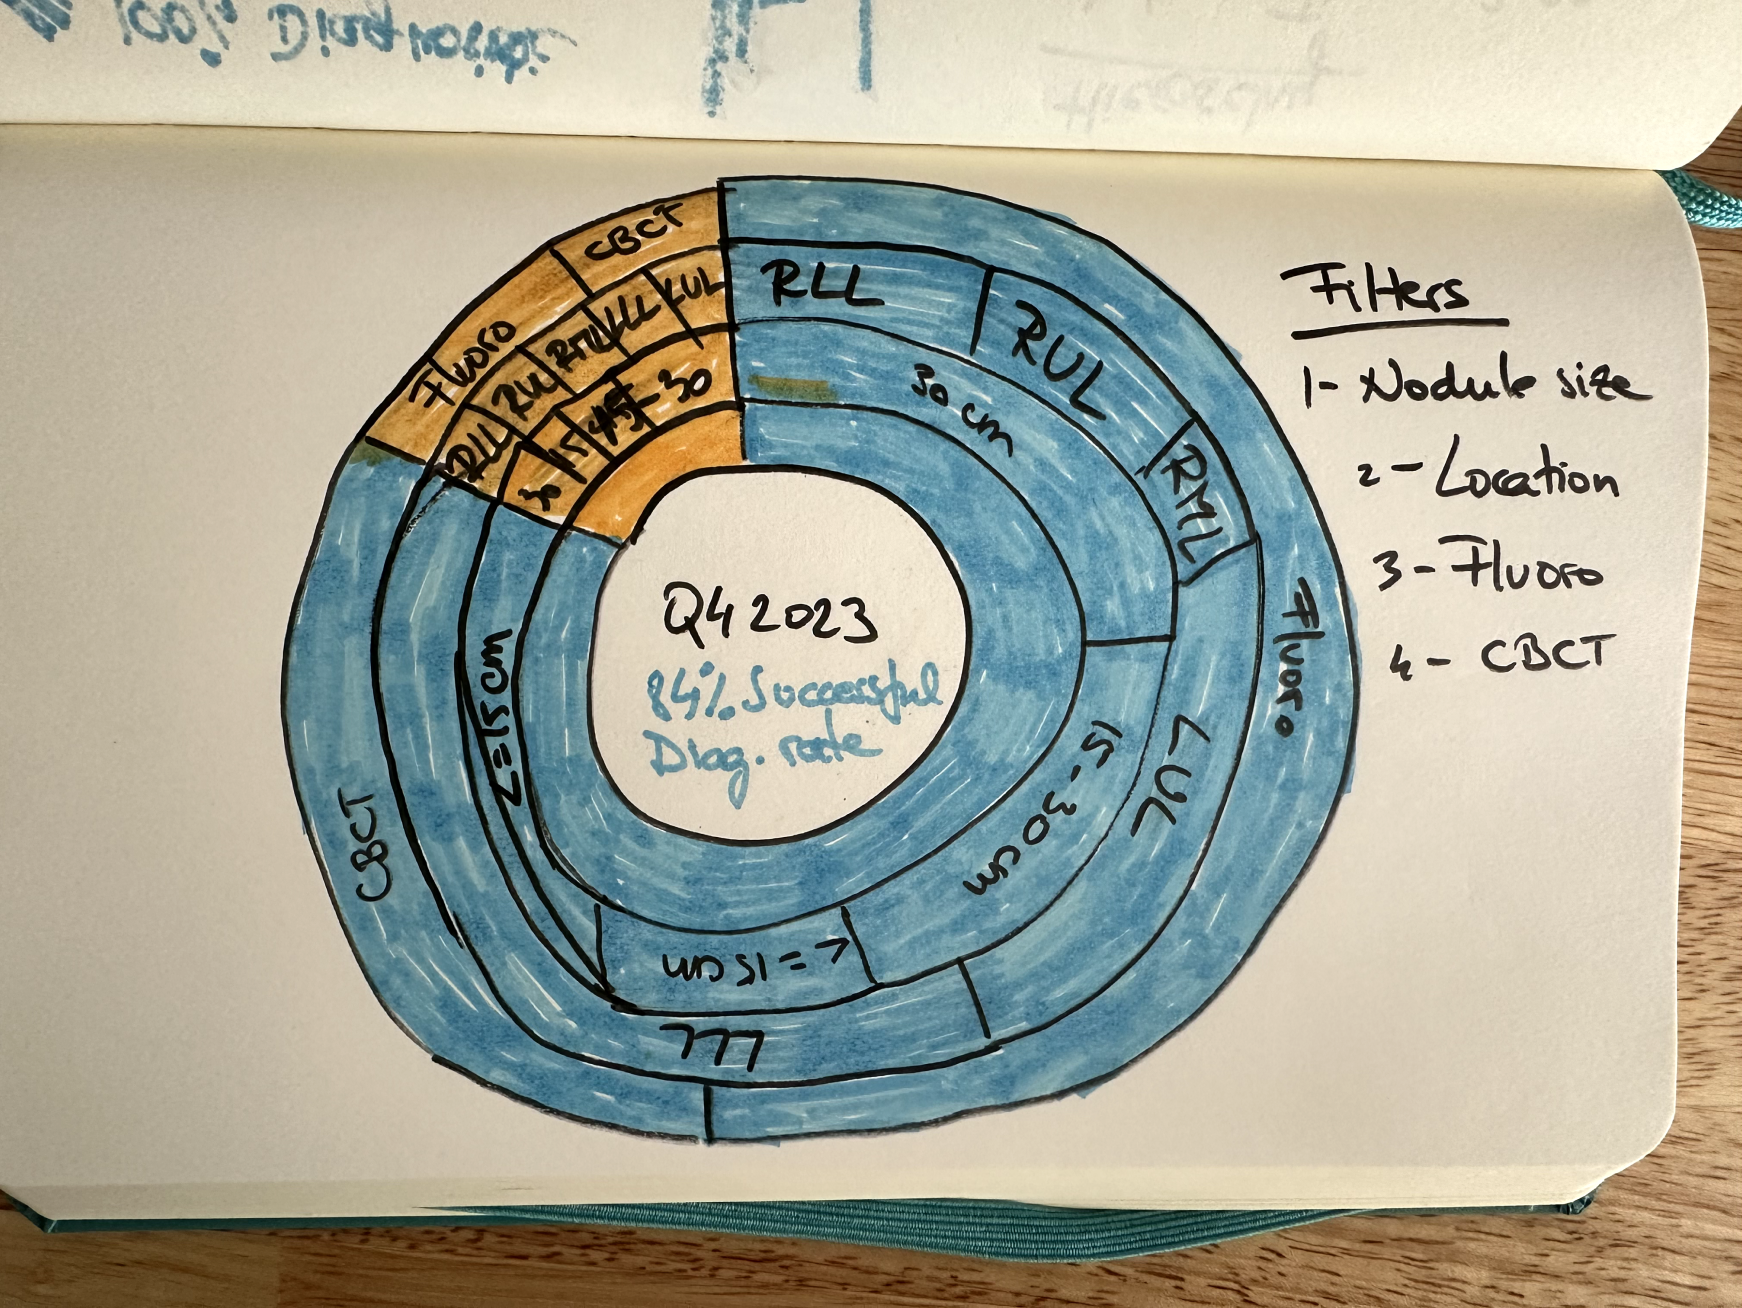 100%
CBCT
LUL
LLL
RML
Fluoro
RUL
RLL
- 30
15
30
RLL
RUL
RML
30 cm
Fluoro
LUL
15 - 30 cm
<= 15 cm
LLL
<= 15 cm
CBCT
Q4 2023
84% Successful
Diag. rate
Filters
1- Nodule size
2 - Location
3 - Fluoro
4 - CBCT